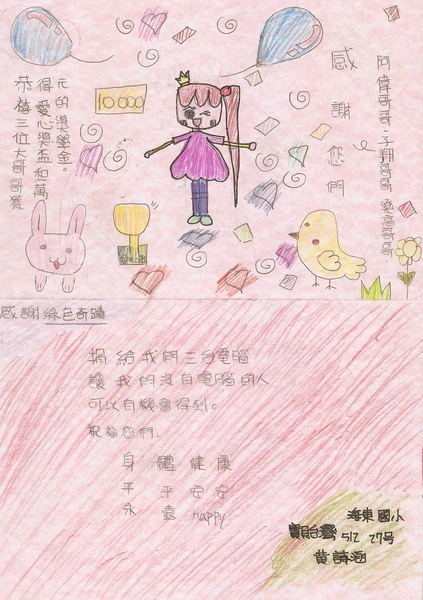 阿偉哥哥、子翔哥哥、樂高哥哥
感謝您們
恭禧三位大哥哥獲
得愛心獎盃和萬
元的獎學金。
10000
感謝綠色奇蹟
捐給我們三台電腦
讓我們沒有電腦的人
可以有機會得到。
祝福您們
身體健康
平平安安
永遠 happy.
海東國小
512 27号
黃詩涵